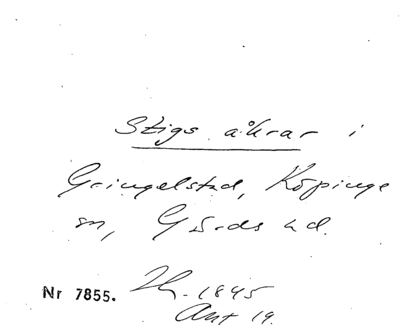 Stigs åkrar i
Gringelstad, Köpinge
sn, Gärds hd.
Nr 7855. 1845
Ant 19.